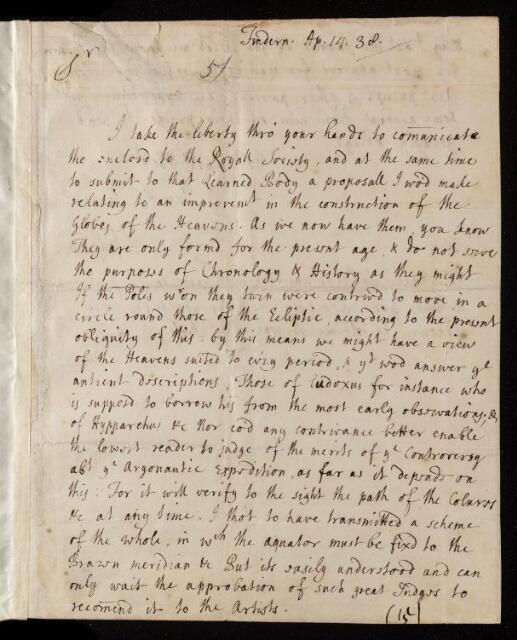 Findern. Ap. 14. 38.
Sr 51
I take the liberty thro' your hands to communicate
the enclosd to the Royall Society, and at the same time
to submit to that Learned Body a proposall I wod made
relating to an improvemt in the construction of the
Globes of the Heavens. As we now have them, you know
They are only formd for the present age, & do not serve
the purposes of Chronology & History as they might
If the Poles wron they turn were contrivd to move in a
circle round those of the Ecliptic, according to the present
obliquity of this. by this means we might have a view
of the Heavens suited to every period, & yt wod answer ye
antient descriptions, Those of Eudoxus for instance who
is supposd to borrow his from the most early observations, &
of Hypparchus &c Nor cod any contrivance better enable
the lowest reader to judge of the merits of ye Controversy
abt ye Argonautic Expedition, as far as it depends on
this: For it will verify to the sight the path of the Colures
&c at any time. I thot to have transmitted a scheme
of the whole, in wch the æquator must be fixd to the
Brazen meridian &c But its easily understood and can
only wait the approbation of such great Judges to
recomend it to the Artists.
(15)